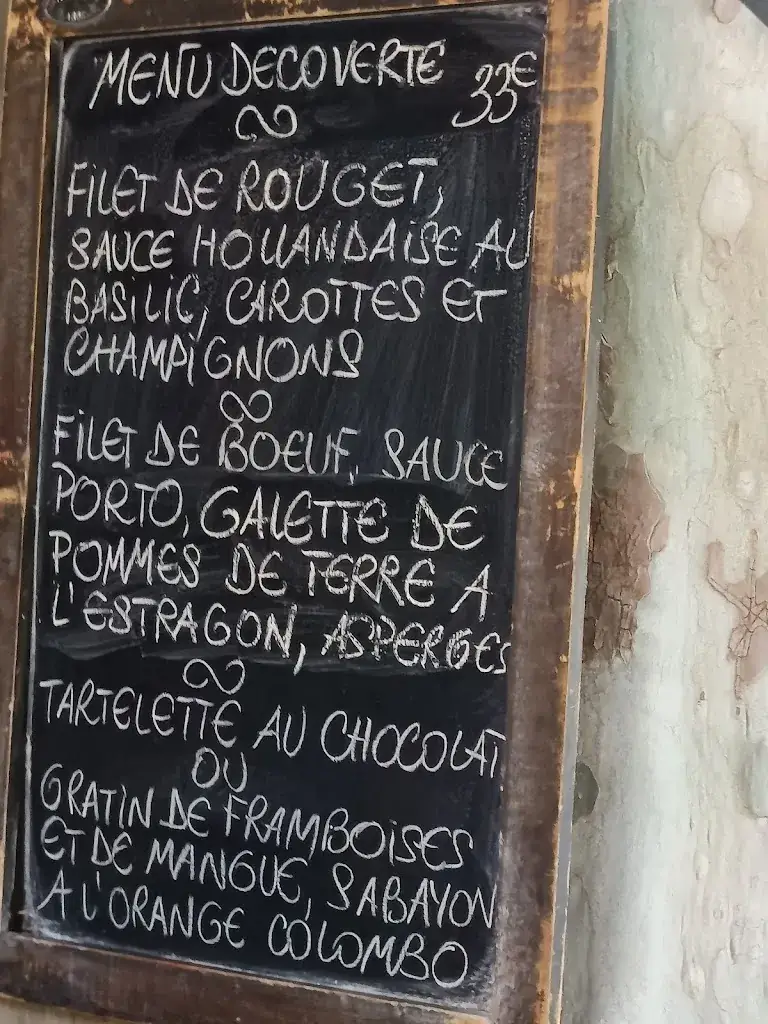 MENU DECOUVERTE 33€
FILET DE ROUGET,
SAUCE HOLLANDAISE AU
BASILIC, CAROTTES ET
CHAMPIGNONS
FILET DE BOEUF, SAUCE
PORTO, GALETTE DE
POMMES DE TERRE A
L'ESTRAGON, ASPERGES
TARTELETTE AU CHOCOLAT
OU
GRATIN DE FRAMBOISES
ET DE MANGUE, SABAYON
A L'ORANGE COLOMBO